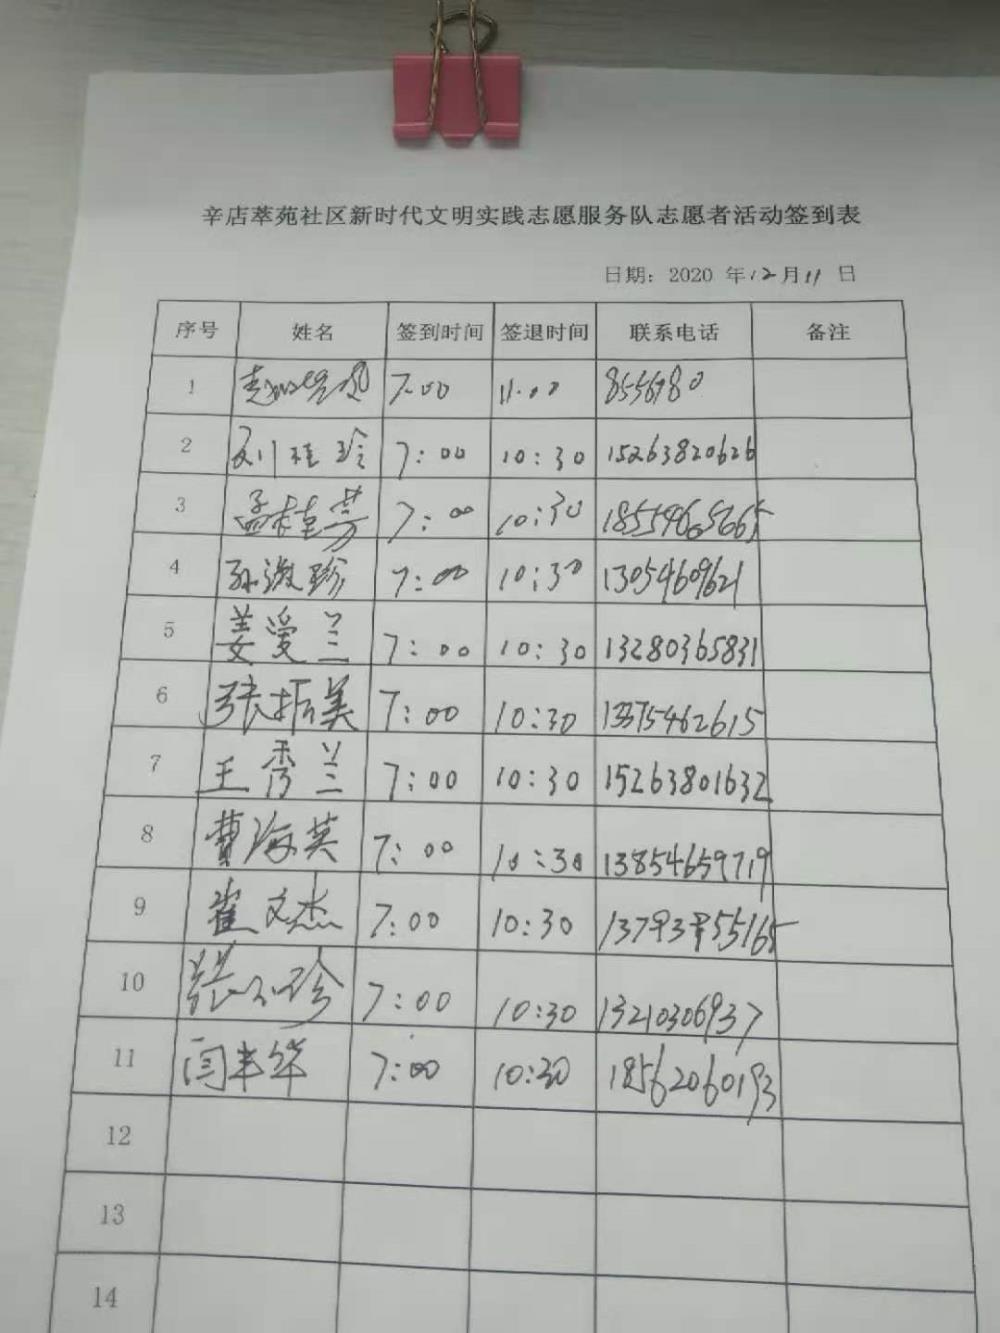 辛店萃苑社区新时代文明实践志愿服务队志愿者活动签到表
日期：2020 年12月11日
序号 姓名 签到时间 签退时间 联系电话 备注
1 7:00 11:00
2 刘桂玲 7:00 10:30 15263820626
3 孟桂芳 7:00 10:30 18554665665
4 孙淑珍 7:00 10:30 13054609621
5 姜爱兰 7:00 10:30 13280365831
6 张振美 7:00 10:30 13375462615
7 王秀兰 7:00 10:30 15263801632
8 曹海英 7:00 10:30 13854659719
9 崔文杰 7:00 10:30
10 7:00 10:30 13210306937
11 闫丰华 7:00 10:30 18562060193
12
13
14